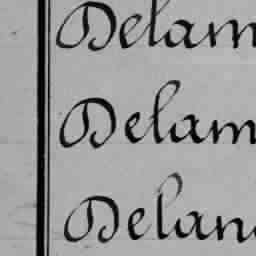 Delam
Delam
Delan